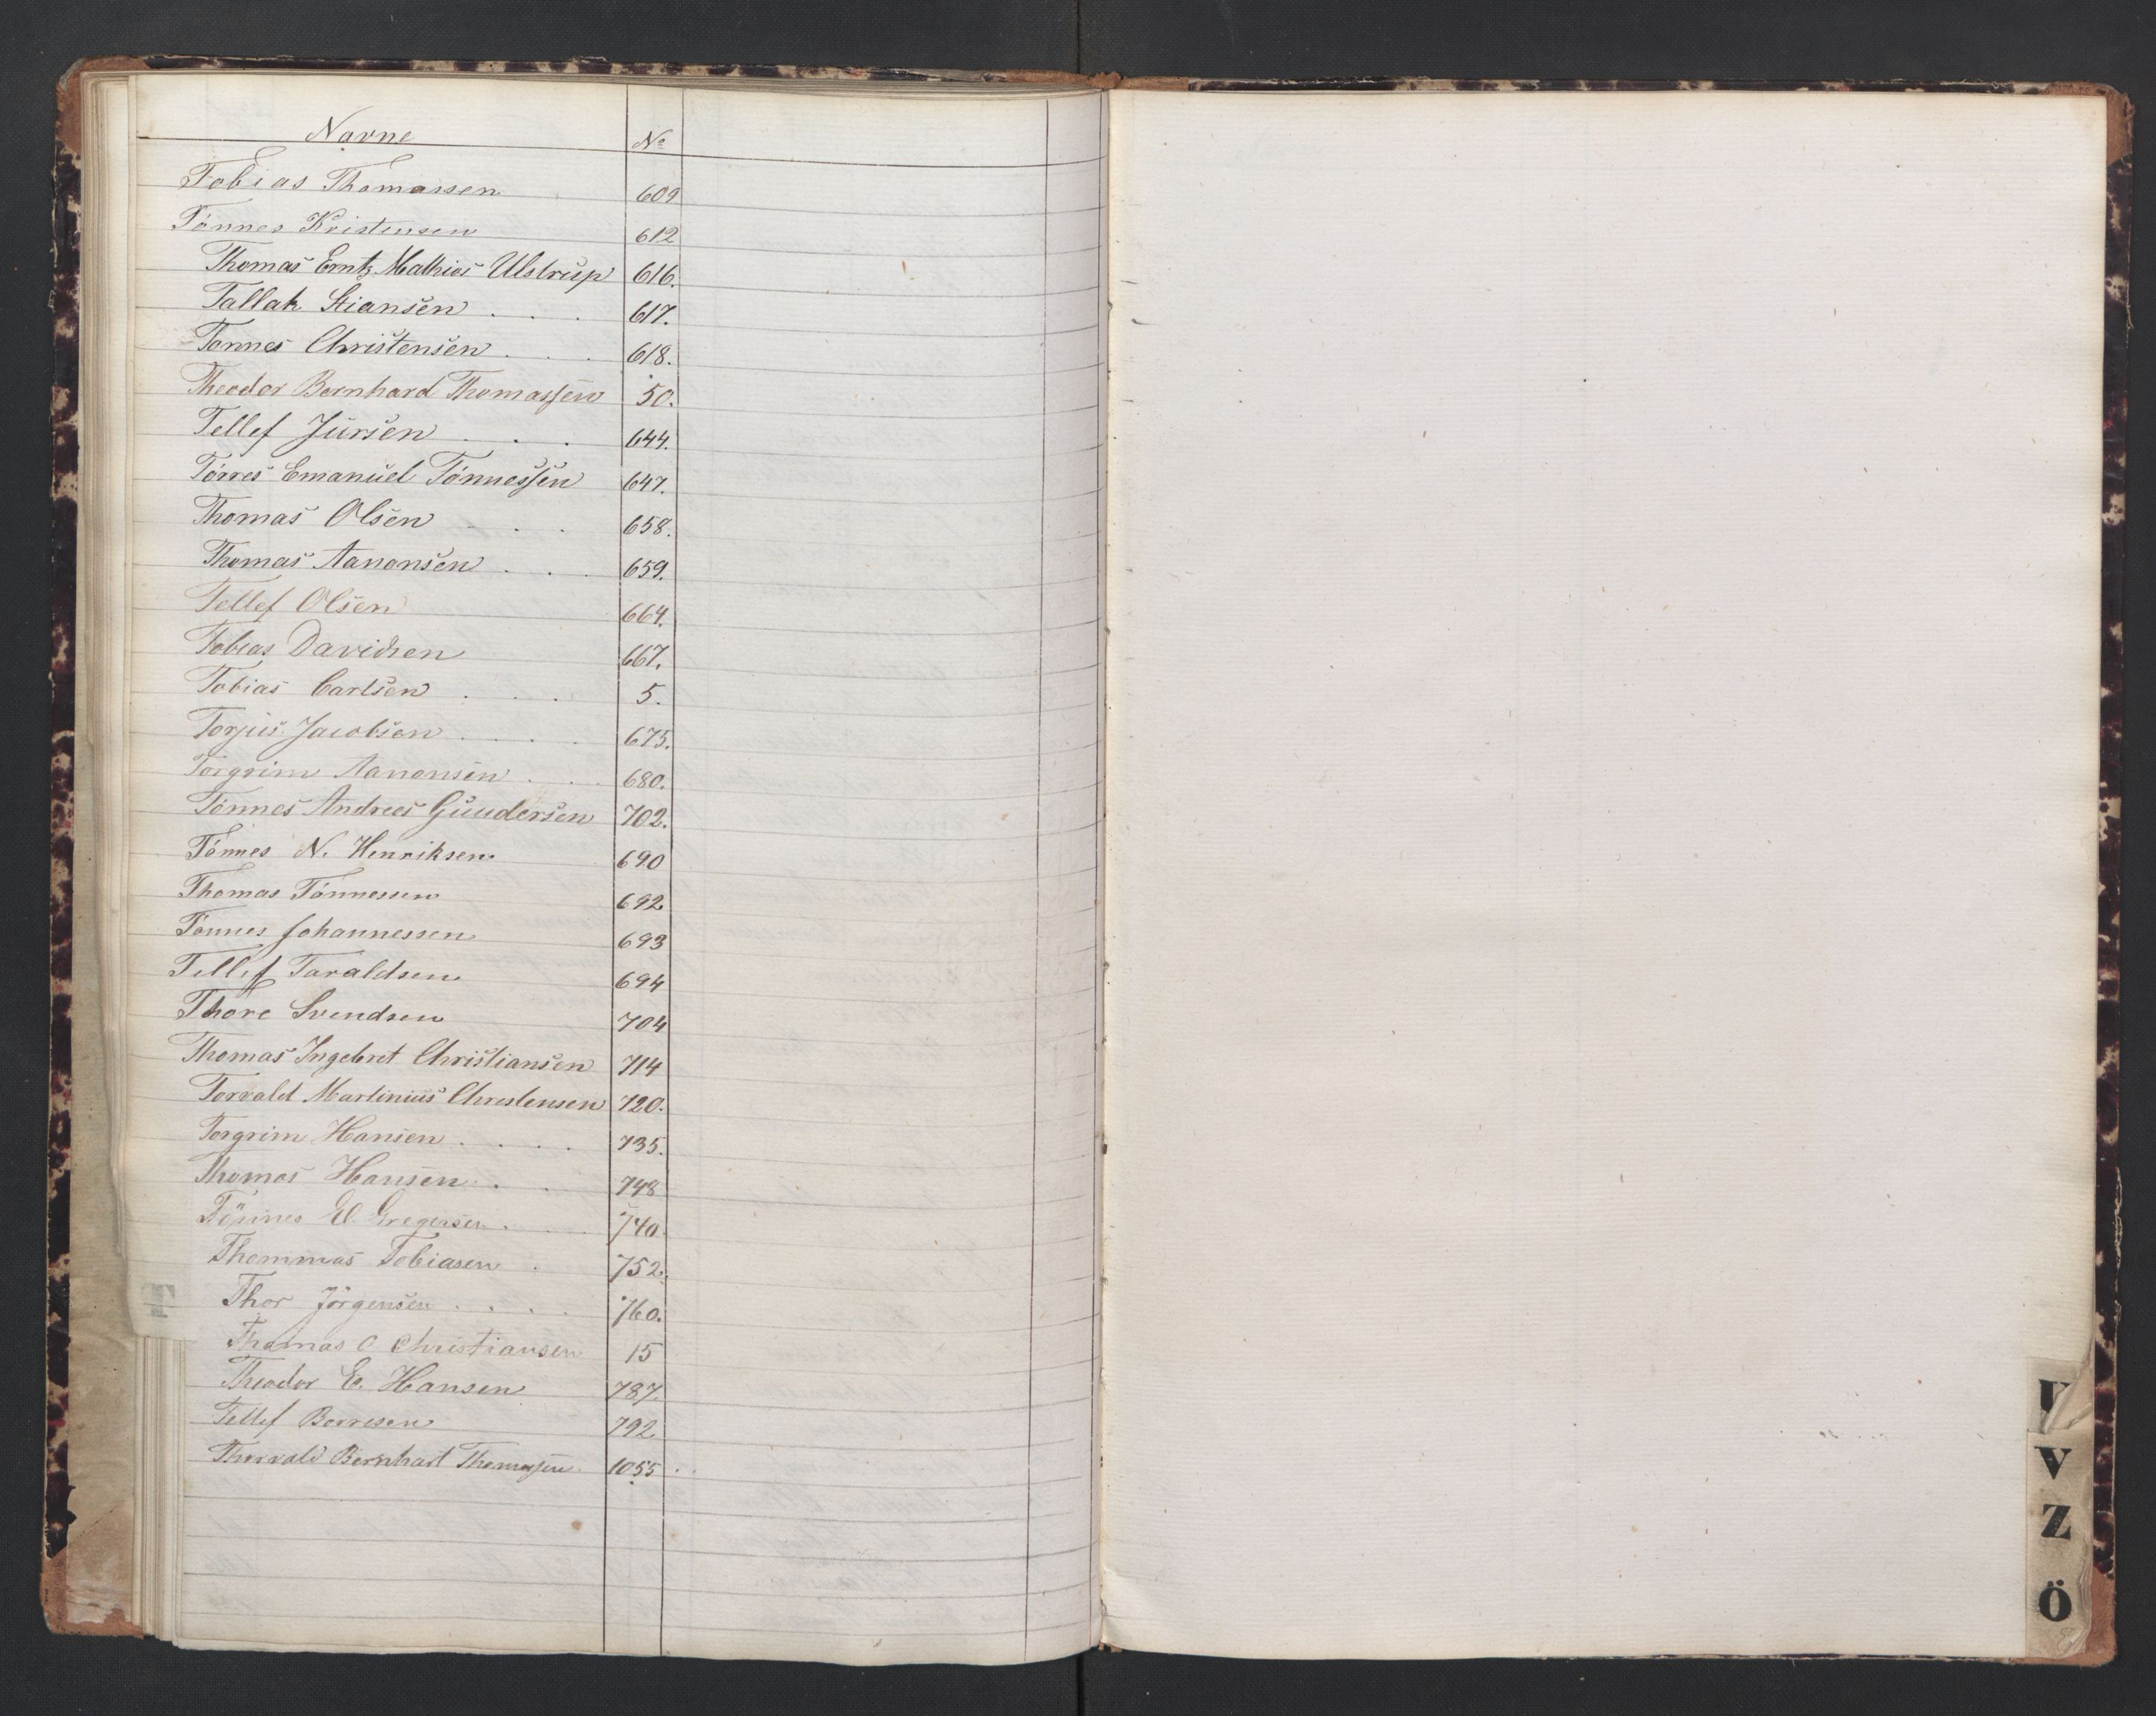 Navne No
Tobias Thomassen 609
Tönnes Kristensen 612
Thomas Erntz Mathias Ulstrup 616.
Tallak Stiansen . . . 617.
Tønnes Christensen . . . 618.
Theodor Bernhard Thomassen 50.
Tellef Jürsen . . . 644.
Tørres Emanuel Tønnessen 647.
Thomas Olsen . . . 658.
Thomas Aanonsen . . . 659.
Tellef Olsen 664.
Tobias Davidsen 667.
Tobias Carlsen . . . 5.
Torjus Jacobsen . . . . 675.
Torgrim Aanonsen . . . 680.
Tønnes Andreas Gundersen 702.
Tönnes N. Henriksen 690
Thomas Tönnessen 692
Tönnes Johannessen 693
Tellef Taraldsen 694
Thore Svendsen 704
Thomas Ingebret Christiansen 714
Torvald Martinius Christensen 720.
Torgrim Hansen . . . . 735.
Thomas Hansen . . 748
Tönnes E. Gregersen . . . 740.
Thommas Tobiasen . 752.
Thor Jörgensen . . . . 760.
Thomas O Christiansen 15
Theodor E. Hansen 787.
Tellef Borresen 792
Thorvald Bernhart Thomassen 1055.
T
U
V
Z
Ö